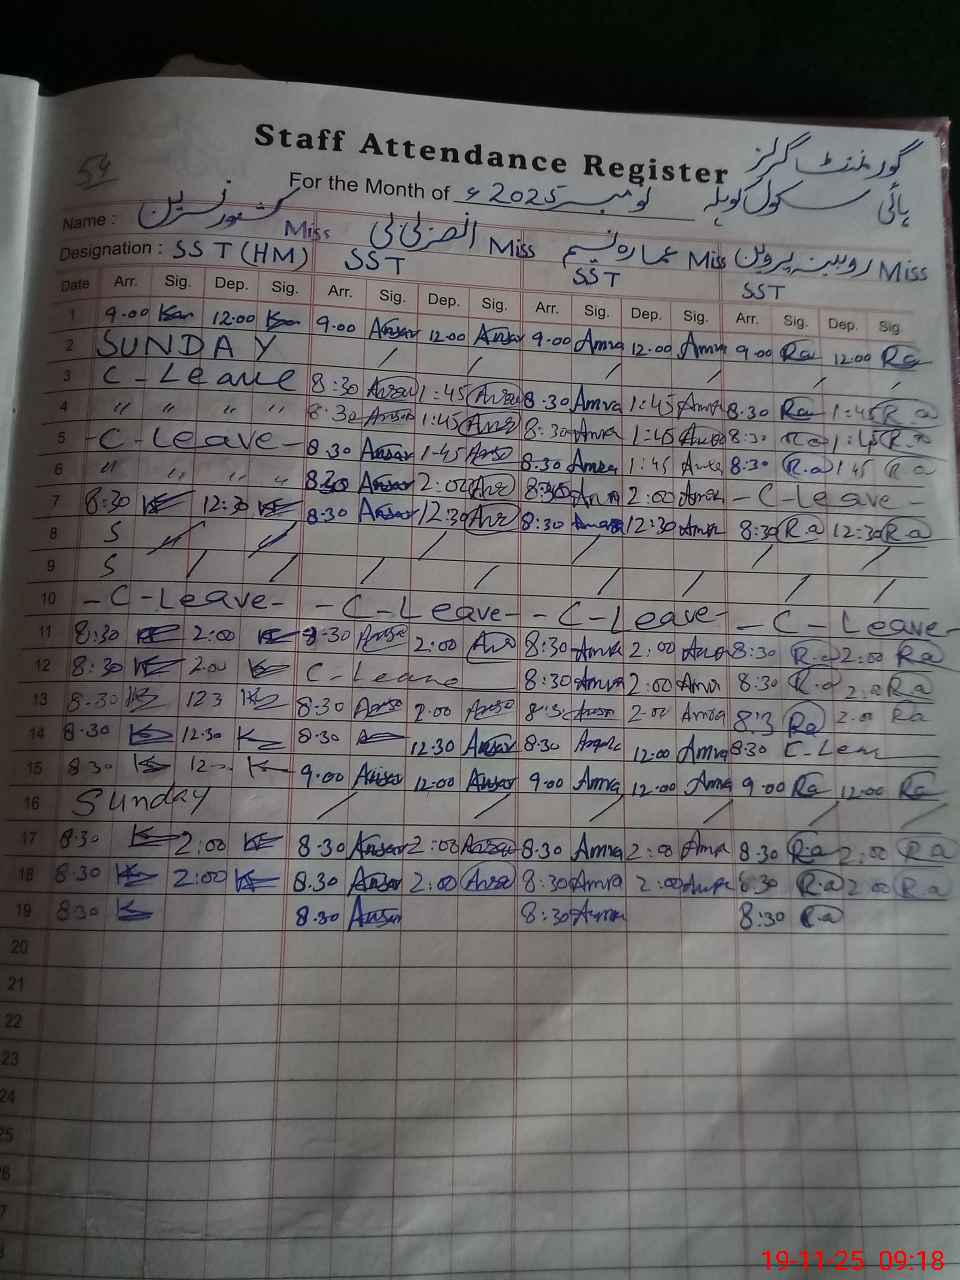 54
Staff Attendance Register
گورنمنٹ گرلز
For the Month of نومبر 2025ء
ہائی سکول کوہلہ
Name : کشور نسرین Miss انصر بی بی Miss عمارہ نسیم Miss روبینہ پروین Miss
Designation : SST (HM) SST SST SST
Date Arr. Sig. Dep. Sig. Arr. Sig. Dep. Sig. Arr. Sig. Dep. Sig. Arr. Sig. Dep. Sig.
1 9.00 12.00 9.00 Ansar 12.00 Ansar 9.00 Amra 12.00 Amra 9.00 Ra 12.00 Ra
2 SUNDAY / / / / / /
3 C-Leave 8:30 Ansar 1:45 Ansar 8.30 Amra 1:45 Amra 8.30 Ra 1:45 R.a
4 " " " " 8.30 Ansar 1:45 Ansar 8:30 Amra 1:45 Amra 8:30 Ra 1:45 R.a
5 -C-Leave- 8.30 Ansar 1-45 Ansar 8.30 Amra 1:45 Amra 8:30 R.a 1:45 R.a
6 " " " " 8.30 Ansar 2:00 Ans 8:30 Amra 2:00 Amra -C-Leave-
7 8:30 12:30 8:30 Ansar 12:30 Ans 8:30 Amra 12:30 Amra 8:30 R.a 12:30 R.a
8 S // // / / / /
9 S / / / / / / / /
10 -C-Leave- -C-Leave- -C-Leave- -C-Leave-
11 8:30 2:00 8.30 Ansa 2:00 Ans 8:30 Amra 2:00 Amra 8:30 R.a 2:00 Ra
12 8:30 2.00 C-Leave 8:30 Amra 2:00 Amra 8.30 R.a 2.0 Ra
13 8.30 123 8.30 Ansa 2.00 Ansa 8:3 2.00 Amra 8:3 Ra 2.00 Ra
14 8.30 12.30 8.30 12.30 Ansar 8:30 12.00 Amra 8.30 C.Leav
15 8.30 12 9.00 Ansar 12.00 Ansar 9.00 Amra 12.00 Amra 9.00 Ra 12.00 Ra
16 Sunday / / / / / /
17 8.30 2:00 8.30 Ansar 2:00 Ansar 8.30 Amra 2:00 Amra 8.30 R.a 2.00 R.a
18 8.30 2:00 8.30 Ansar 2:00 Ansa 8:30 Amra 2:00 Amra 8.30 R.a 2.00 R.a
19 8.30 8.30 Ansar 8:30 Amra 8:30 Ra
20
21
22
23
24
25
6
7
19-11-25 09:18